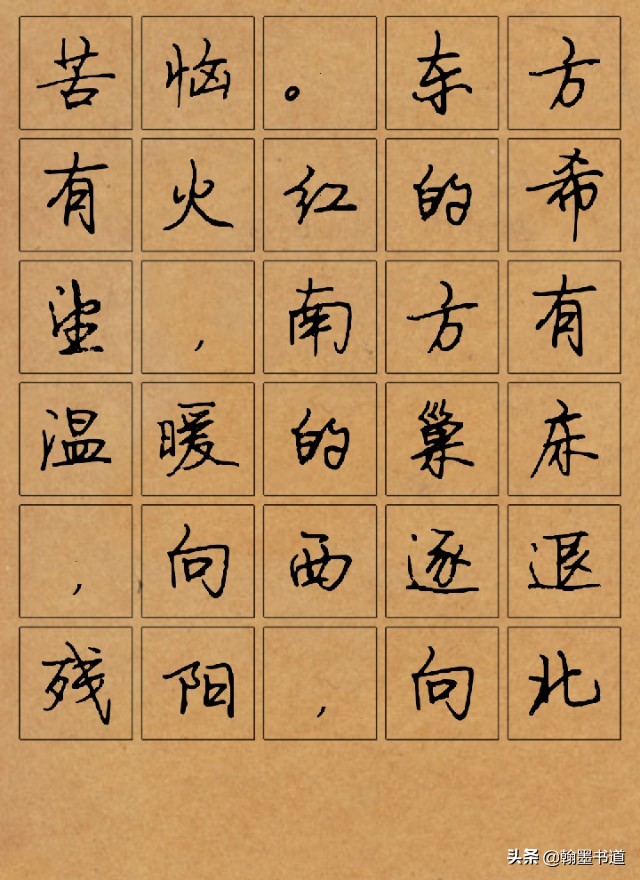 苦恼。东方
有火红的希
望，南方有
温暖的巢床
，向西逐退
残阳，向北
头条 @翰墨书道